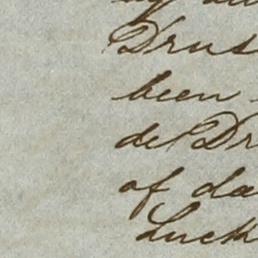 Drus
been
de Dr
of da
Luck